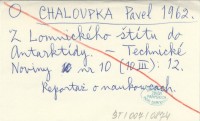 O CHALOUPKA Pavel 1962.
Z Lomnického štítu do
Antarktídy. – Technické
Noviny nr 10 (10 III): 12.
Reportaż o naukowcach.